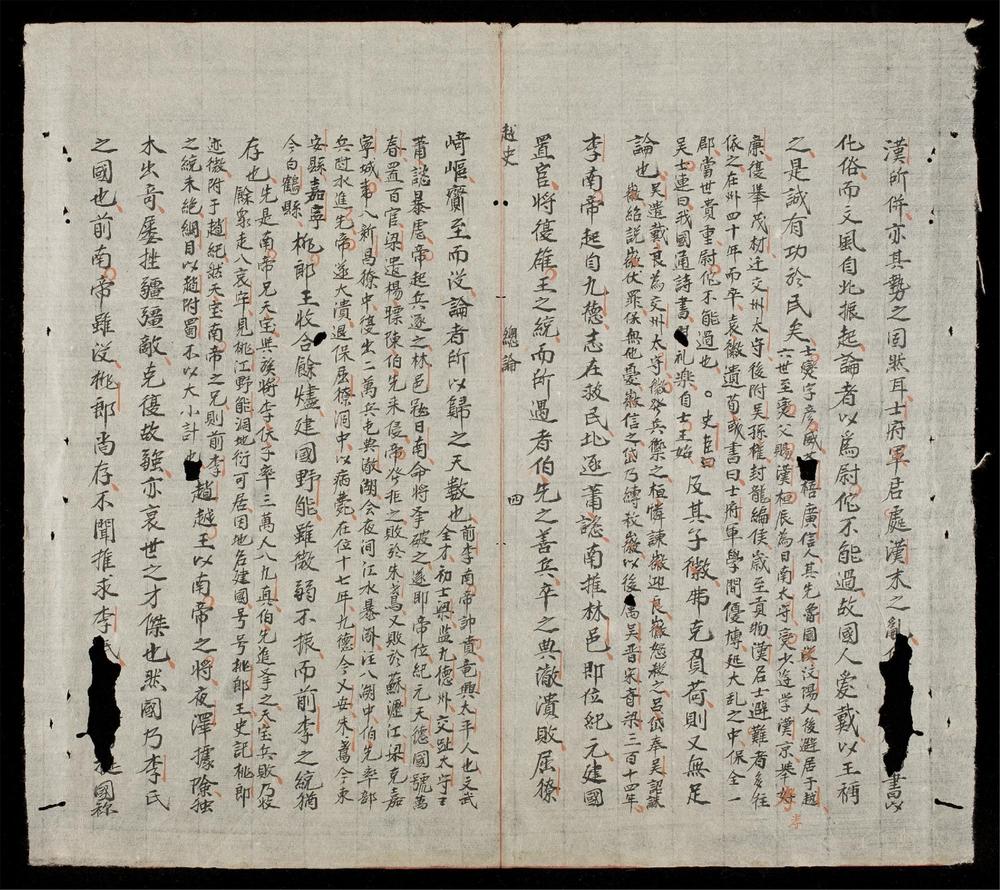 漢所併亦其勢之固然耳士府君居處漢末之亂 書以
化俗而文風自北振起論者以爲尉佗不能過故國人愛戴以王稱
之是誠有功於民矣士燮字彥威 梧廣信人其先魯國汶陽人後避居于越
六世至燮父賜漢桓辰為日南太守燮少遊學漢京舉孝
廉復舉茂材迁交州太守後附吳孫權封龍編侯歲至貢物漢名士避難者多往
依之在州四十年而卒袁徽遺荀彧書曰士府君學問優博處大乱之中保全一
郡當世貴重尉佗不能過也。史臣曰
吳士連曰我國通詩書 礼楽自士王始 及其子徽弗克負荷則又無足
論也吳遣戴良為交州太守徽發兵禦之桓憐諫徽迎良徽怒殺之呂岱奉吳詔誠
徽紿説徽伏罪保無他憂徽信之岱乃縳殺徽以後 属吳晋宋斉梁三百十四年
李南帝起自九德志在救民北逐蕭諮南推林邑即位紀元建國
置官將復雄王之統而所遇者伯先之善兵卒之典澈潰敗屈獠
越史 總論 四
崎嶇賫至而没論者所以歸之天數也前李南帝諱賁竜興太平人也文武
全才初士梁监九德州交趾太守
蕭諮暴虐帝起兵逐之林邑冦日南命將擊破之遂即帝位紀元天德國號萬
春置百官梁遣楊㬓陳伯先来侵帝発拒之敗於朱鳶又敗於蘇瀝江梁克嘉
寧城帝入新昌獠中復出二萬兵屯典澈湖会夜间江水暴漲注入湖中伯先率部
兵随水進先帝遂大潰退保屈獠洞中以病薨在位十七年九德今乂安朱鳶今東
安縣嘉寧
今白鶴縣 桃郎王收合餘燼建國野能雖微弱不振而前李之統猶
存也先是南帝兄天宝與族將李伏子率三萬人入九真伯先進擊之天宝兵敗乃收
餘衆走入哀牢見桃江野能洞地衍可居因地名建國号号桃郎王史記桃郎
迩微附于趙紀然天宝南帝之兄則前李
之統未絶綱目以趙附蜀不以大小計也 趙越王以南帝之將夜澤據險独
木出奇屢挫疆彊敵克復故疆亦衰世之才傑也然國乃李氏
之國也前南帝雖没桃郎尚存不聞推求李氏 國称